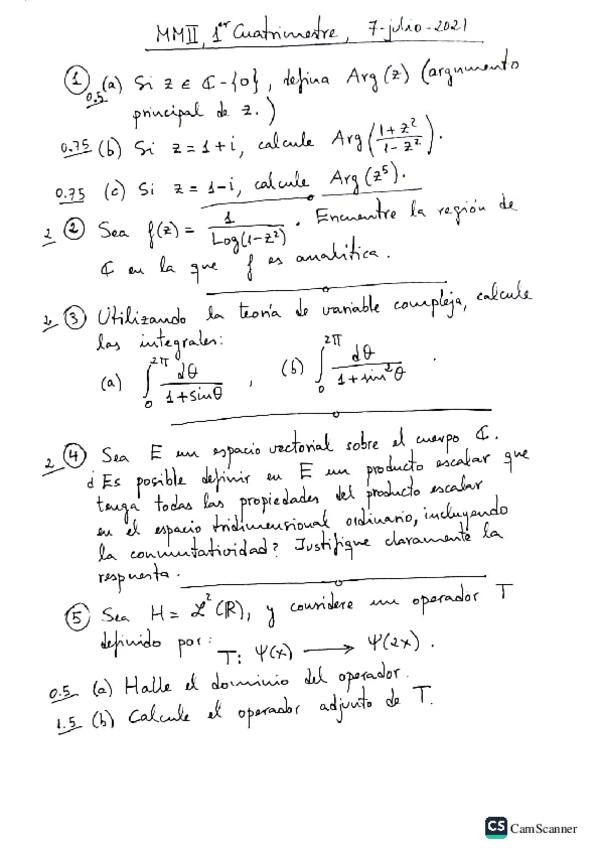 MMII, 1er Cuatrimestre, 7-julio-2021
① (a) Si z ∈ ℂ-{0}, defina Arg(z) (argumento
0.5
principal de z.)
0.75 (b) Si z = 1+i, calcule Arg((1+z²)/(1-z²)).
0.75 (c) Si z = 1-i, calcule Arg(z⁵).
2 ② Sea f(z) = 1/Log(1-z²). Encuentre la región de
ℂ en la que f es analítica.
2 ③ Utilizando la teoría de variable compleja, calcule
las integrales:
(a) ∫₀^2π dθ/(1+sinθ), (b) ∫₀^2π dθ/(1+sin²θ).
2 ④ Sea E un espacio vectorial sobre el cuerpo ℂ.
¿Es posible definir en E un producto escalar que
tenga todas las propiedades del producto escalar
en el espacio tridimensional ordinario, incluyendo
la conmutatividad? Justifique claramente la
respuesta.
⑤ Sea H = ℒ²(ℝ), y considere un operador T
definido por:
T: Ψ(x) ⟶ Ψ(2x).
0.5 (a) Halle el dominio del operador.
1.5 (b) Calcule el operador adjunto de T.
CS CamScanner